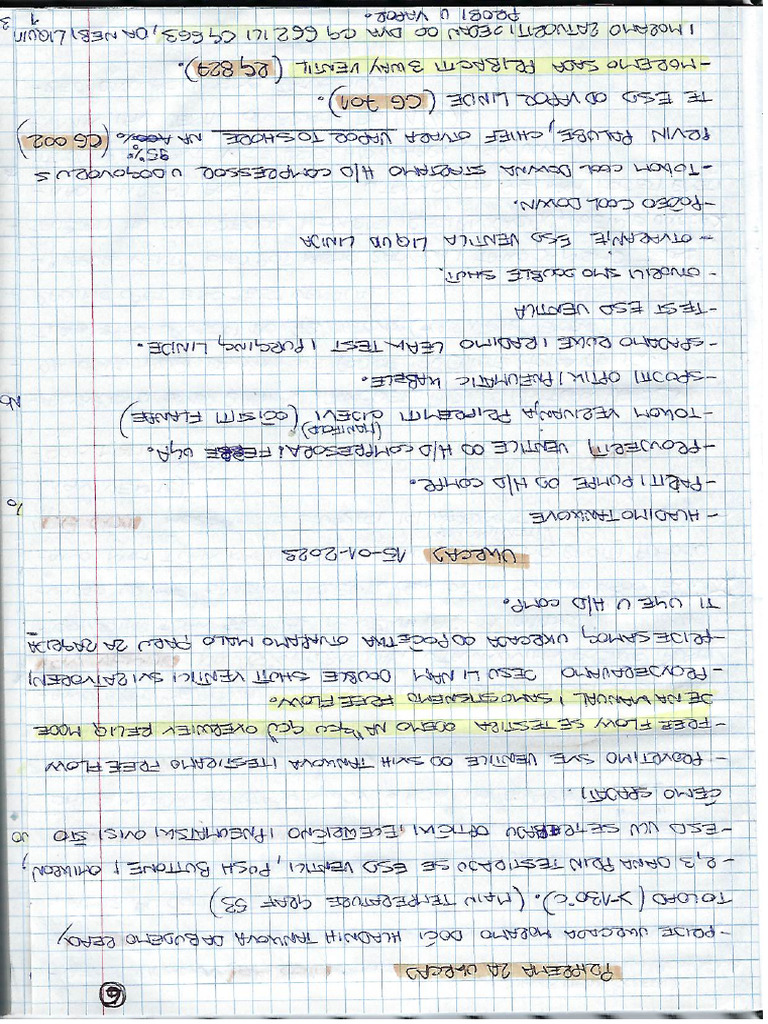 6
PRIPREMA ZA UKRCAJ
- PRIJE UKRCAJA MORAMO DOĆI HLADNIH TANKOVA DA BUDEMO READY
TO LOAD (>-130°C). (MAIN TEMPERATURE GRAF 53)
- 2,3 DANA PRIJE TESTIRAJU SE ESD VENTILI, PUSH BUTTONE I OMIKRON,
- ESD UVIJ SE TREBAJU OPTIČKI, ELEKTRIČNO I PNEUMATSKI OVISI ŠTO
ĆEMO SPAJATI.
- PROVRTIMO SVE VENTILE OD SVIH TANKOVA I TESTIRAMO FREE FLOW
- FREE FLOW SE TESTIRA ODEMO NA "GCU GCU OVERWIEV RELIQ MODE
JE NA MANUAL I SAMO STISNEMO FREE FLOW.
- PROVJERAVAMO JESU LI NAM DOUBLE SHUT VENTILI SVI ZATVORENI
- PRIJE SAMOG UKRCAJA OD POČETKA OTVARAMO MALO PARU ZA ZAGRIJA
TI ULJE U H/D COMP.
UKRCAJ 15-01-2022
- HLADIMO TANKOVE
- PALITI PUMPE OD H/D COMPR.
- PROVJERITI VENTILE OD H/D COMPRESORA I ULJA.
(MANIFOLD)
- TOKOM VEZIVANJA PRIPREMITI CIJEVI (OČISTITI FLANĐE)
- SPOJITI OPTIK I PNEUMATIC KABELE.
- SPAJAMO RUKE I RADIMO LEAK TEST I PURGING LINIJE.
- TEST ESD VENTILA
- OTVORILI SMO DOUBLE SHUT.
- OTVARANJE ESD VENTILA LIQUID LINIJA
- POČEO COOL DOWN.
- TOKOM COOL DOWNA STARTAMO H/D COMPRESSOR U DOGOVORU S
95%
PRVIM PALUBE, CHIEF OTVARA VAPOR TO SHORE NA 100%. (CG 002)
TE ESD OD VAPOR LINIJE (CG 701).
- MOREMO SADA PRIBACITI 3 WAY VENTIL (CG 827).
I MORAMO ZATVORITI JEDAN OD DVA CG 662 ILI CG 663, DA NE BI LIQUID
PROBI U VAPOR.